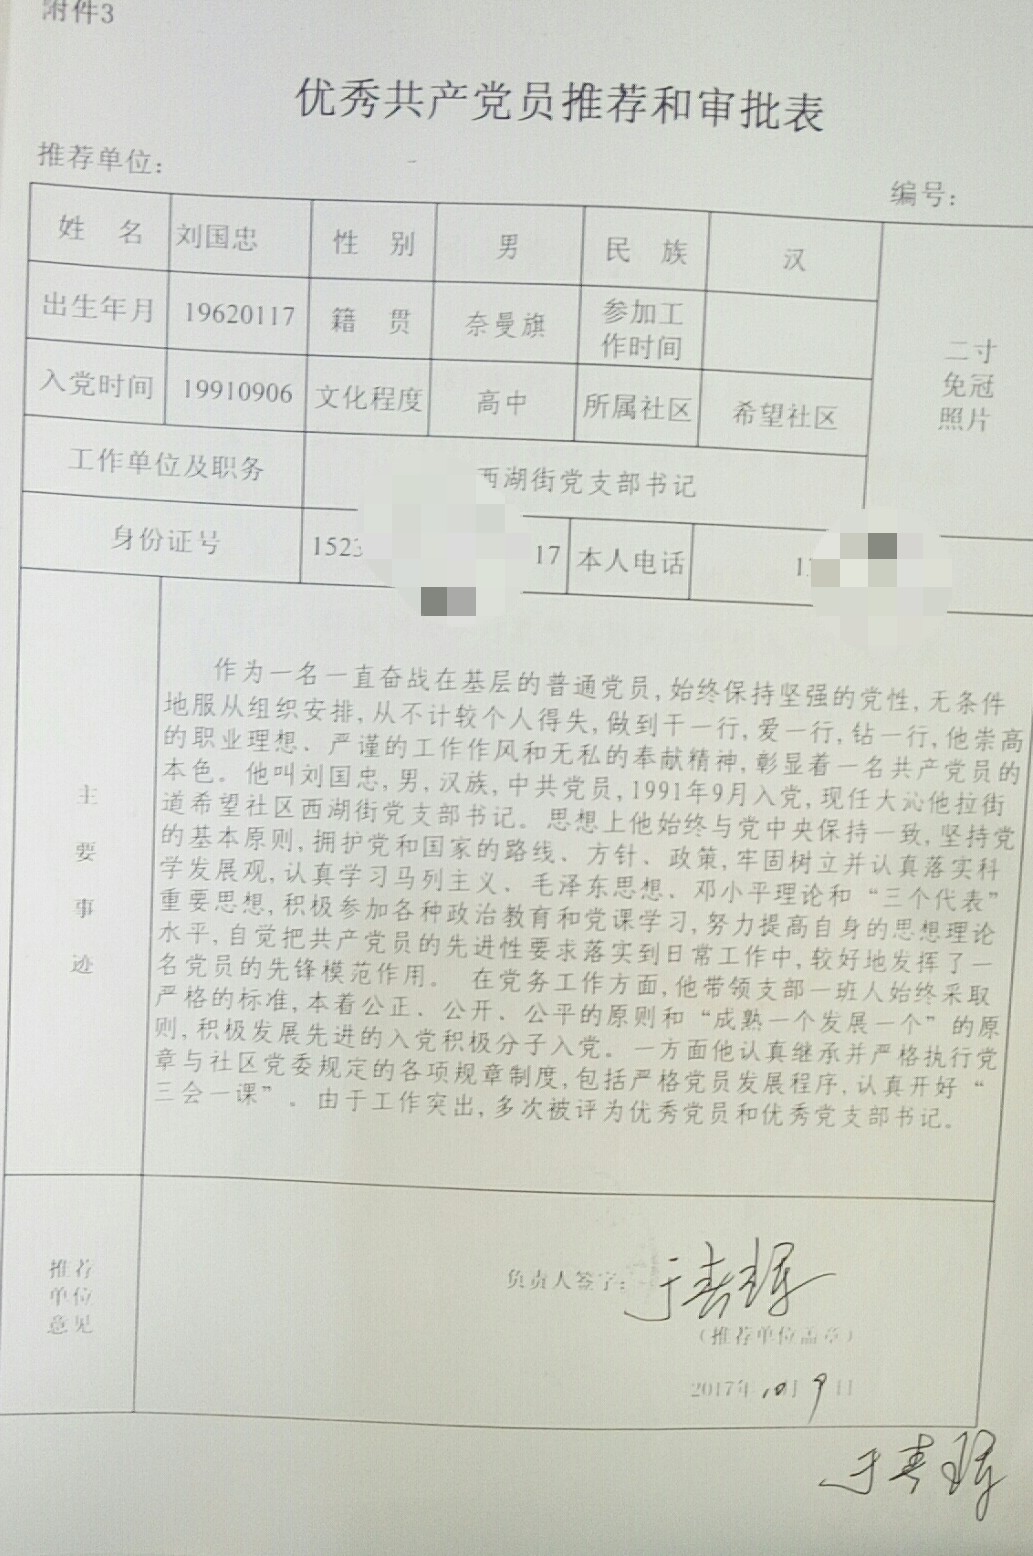 附件3
优秀共产党员推荐和审批表
推荐单位：
编号：
姓 名 刘国忠 性 别 男 民 族 汉
出生年月 19620117 籍 贯 奈曼旗 参加工作时间
二寸免冠照片
入党时间 19910906 文化程度 高中 所属社区 希望社区
工作单位及职务 西湖街党支部书记
身份证号 1523 17 本人电话 1
主要事迹
作为一名一直奋战在基层的普通党员，始终保持坚强的党性，无条件
地服从组织安排，从不计较个人得失，做到干一行，爱一行，钻一行，他崇高
的职业理想、严谨的工作作风和无私的奉献精神，彰显着一名共产党员的
本色。他叫刘国忠，男，汉族，中共党员，1991年9月入党，现任大沁他拉街
道希望社区西湖街党支部书记。思想上他始终与党中央保持一致，坚持党
的基本原则，拥护党和国家的路线、方针、政策，牢固树立并认真落实科
学发展观，认真学习马列主义、毛泽东思想、邓小平理论和“三个代表”
重要思想，积极参加各种政治教育和党课学习，努力提高自身的思想理论
水平，自觉把共产党员的先进性要求落实到日常工作中，较好地发挥了一
名党员的先锋模范作用。 在党务工作方面，他带领支部一班人始终采取
严格的标准，本着公正、公开、公平的原则和“成熟一个发展一个”的原
则，积极发展先进的入党积极分子入党。一方面他认真继承并严格执行党
章与社区党委规定的各项规章制度，包括严格党员发展程序，认真开好“
三会一课”。由于工作突出，多次被评为优秀党员和优秀党支部书记。
推荐单位意见
负责人签字：于春
（推荐单位盖章）
2017年10月9日
于春